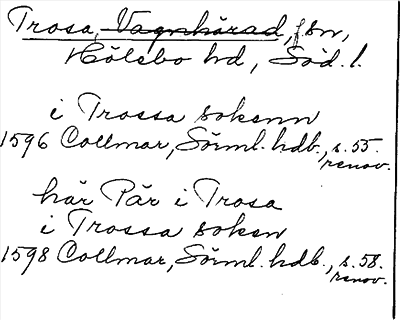 Trosa, Vagnhärad, fsn,
Hölebo hd, Söd. l.
i Trossa sokenn
1596 Collmar, Sörml. hdb., s. 55.
renov.
här Pär i Trosa
i Trossa soken
1598 Collmar, Sörml. hdb., s. 58.
renov.